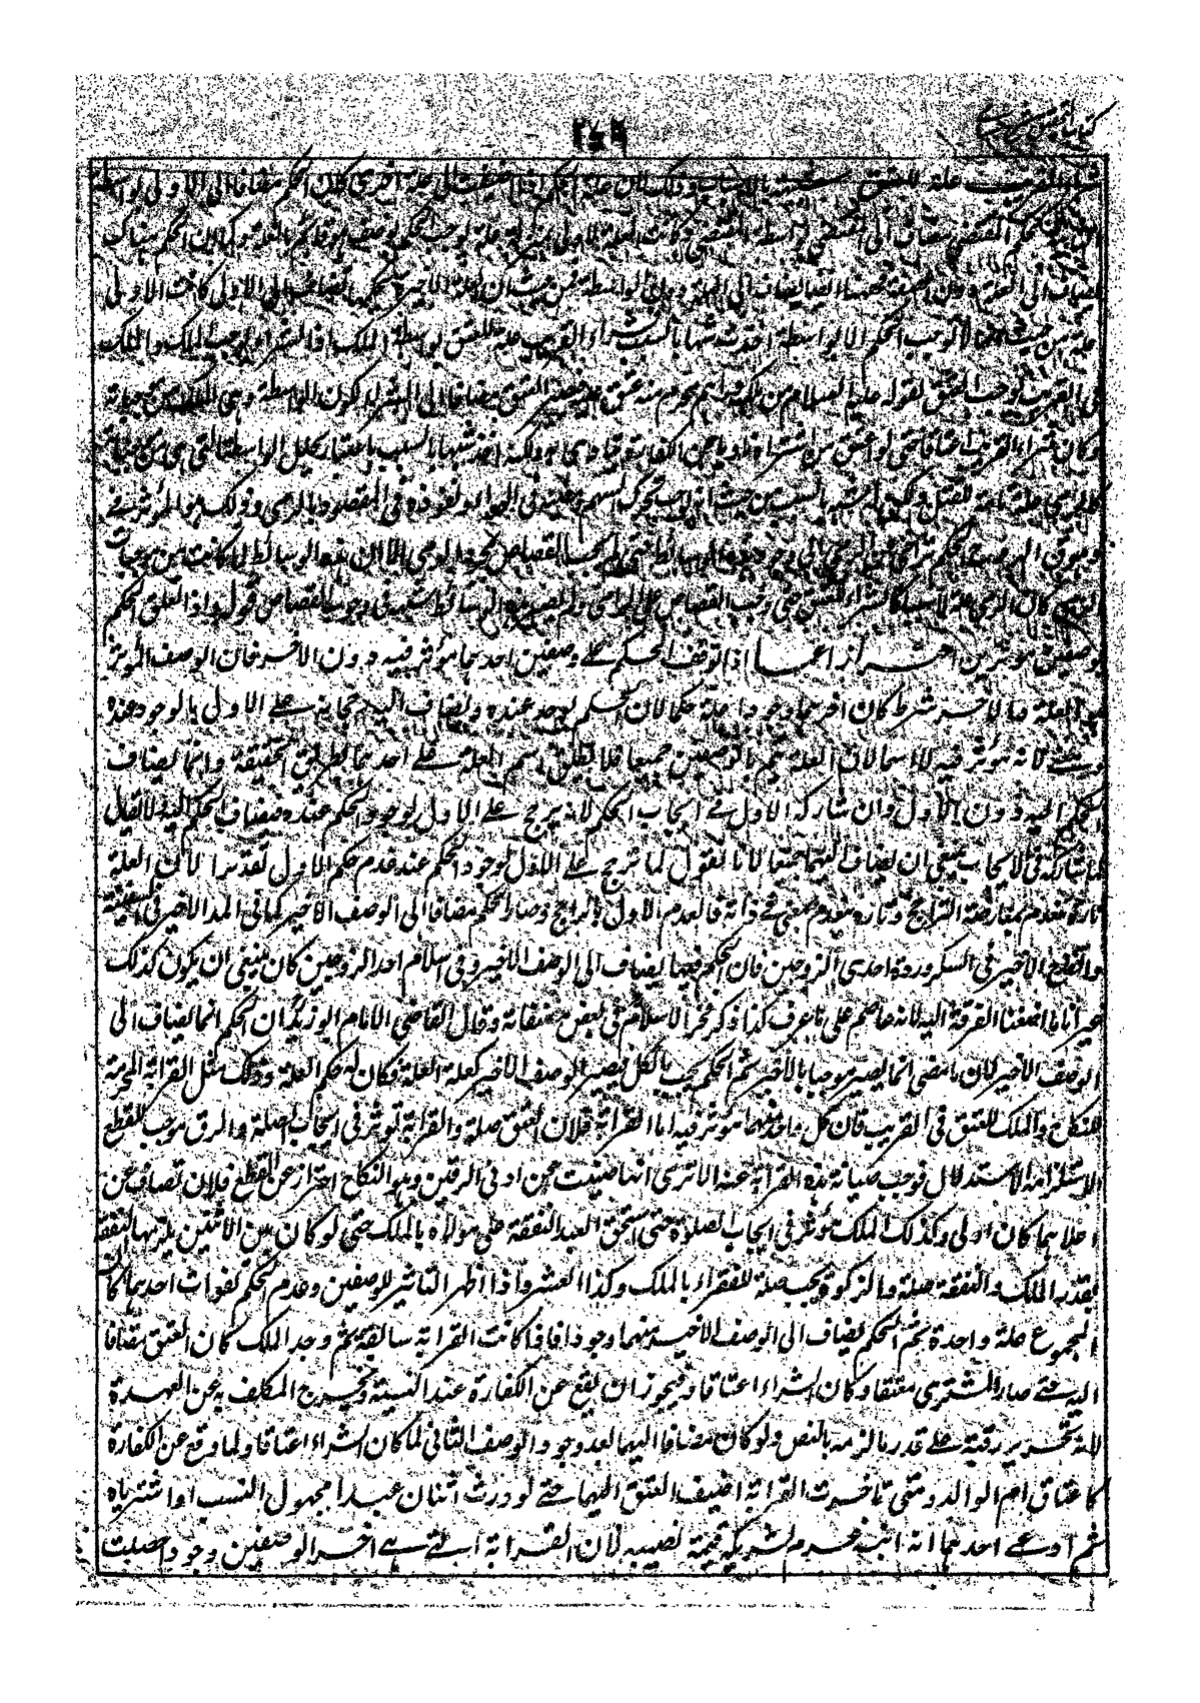 كتاب التحقيق شرح حسامي
٢٤٩
شراء القريب علة للعتق بالاسباب وذلك لان علة الحكم اذا اضيفت الى علة اخرى كان الحكم مضافا الى الاولى بواسطة
حكم المقتضى مضاف الى المقتضي بواسطة المقتضى وكانت العلة الاولى بمنزلة علة توجب الحكم بوصف هو قائم بالعلة وكما ان الحكم هناك
يضاف الى العلة دون الصفة فههنا ايضا يضاف الى العلة دون الواسطة فمن حيث ان العلة الاخيرة بحكمها تضاف الى الاولى كانت الاولى
علة ومن حيث انها لا توجب الحكم الا بواسطة اخذت شبها بالسبب شراء القريب علة للعتق بواسطة الملك اذ الشراء يوجب الملك والملك
في القريب يوجب العتق لقوله عليه السلام من ملك ذا رحم محرم منه عتق عليه فيصير العتق مضافا الى الشراء لكون الواسطة وهي الملك من موجباته
وكان شراء القريب اعتاقا حتى لو اشتراه ناويا عن الكفارة ولكنه اخذ شبها بالسبب باعتبار تخلل الواسطة التي هي من
كالرمي علة تامة للقتل ولكنه يشبه السبب من حيث انه يوجب تحرك السهم ومضيه في الهواء ونفوذه في المقصود بالرمي وذلك هو المؤثر في
القصاص بمجرد الرمي الا ان هذه الوسائط لما كانت من موجبات
الرمي كان الرمي علة لا سببا كالشراء للعتق حتى وجب القصاص على الرامي ولم يصر هذه الوسائط شبهة في وجوب القصاص قوله واذا تعلق الحكم
بوصفين مؤثرين احتراز اعما اذا توقف الحكم على وصفين احدهما مؤثر فيه دون الاخر فان الوصف المؤثر
هو العلة والاخر شرط كان اخرهما وجودا علة حكما لان الحكم يوجد عنده ويضاف اليه لرجحانه على الاول بالوجود عنده
ومعنى لانه مؤثر فيه لا اسما لان العلة تتم بالوصفين جميعا فلا يطلق اسم العلة على احدهما بطريق الحقيقة وانما يضاف
الحكم اليه دون الاول وان شاركه الاول في ايجاب الحكم لانه يرجح على الاول لوجود الحكم عنده فيضاف الحكم اليه لا يقال
لما شاركه في الايجاب ينبغي ان يضاف اليهما جميعا لانا نقول لما ترجح على الاول لوجود الحكم عنده عدم حكم الاول تقديرا لان العلة
تارة تنعدم بمعارضة الراجح وتارة تنعدم بمعنى في ذاته فالعدم الاول بالراجح وصار الحكم مضافا الى الوصف الاخير كما في المد الاخير في السفينة
والقدح الاخير في السكر وردة احدى الزوجين فان الحكم فيها يضاف الى الوصف الاخير وفي اسلام احد الزوجين كان ينبغي ان يكون كذلك
غير انا ما اضفنا الفرقة اليه لانه عاصم على ما عرف كذا ذكر فخر الاسلام في بعض مصنفاته وقال القاضي الامام ابو زيد ان الحكم انما يضاف الى
الوصف الاخير لان ما مضى انما يصير موجبا بالاخير ثم الحكم يجب بالكل فيصير الوصف الاخير كعلة العلة فكان له حكم العلة وذلك مثل القرابة المحرمة
للنكاح والملك للعتق في القريب فان كل واحد منهما مؤثر فيه اما القرابة فلان العتق صلة والقرابة تؤثر في ايجاب الصلة والرق موجب للقطع
لاستلزامه الاستذلال فوجب صيانة هذه القرابة عنه الا ترى انها صينت عن ادنى الرقين وهو النكاح احترازا عن القطع فلان تصان عن
اعلاهما كان اولى وكذلك الملك مؤثر في ايجاب الصلة حتى استحق العبد النفقة على مولاه بالملك حتى لو كان بين الاثنين يلزمهما النفقة
بقدر الملك والنفقة صلة والزكوة تجب صلة للفقراء بالملك وكذا العشر واذا ظهر التاثير للوصفين وعدم الحكم لفوات احدهما كان
المجموع علة واحدة ثم الحكم يضاف الى الوصف الاخير منهما وجودا فاذا كانت القرابة سابقة ثم وجد الملك كان العتق مضافا
اليه حتى صار المشتري معتقا وكان الشراء اعتاقا فيجوز ان يقع عن الكفارة عند النية ويخرج المكلف به عن العهدة
لانه تحرير رقبة على قدر ما لزمه بالنص ولو كان مضافا اليهما بعد وجود الوصف الثاني لما كان الشراء اعتاقا ولما وقع عن الكفارة
كاعتاق ام الولد ومتى تاخرت القرابة اضيف العتق اليها حتى لو ورث اثنان عبدا مجهول النسب او اشترياه
ثم ادعى احدهما انه ابنه غرم لشريكه قيمة نصيبه لان القرابة التي هي اخر الوصفين وجودا حصلت